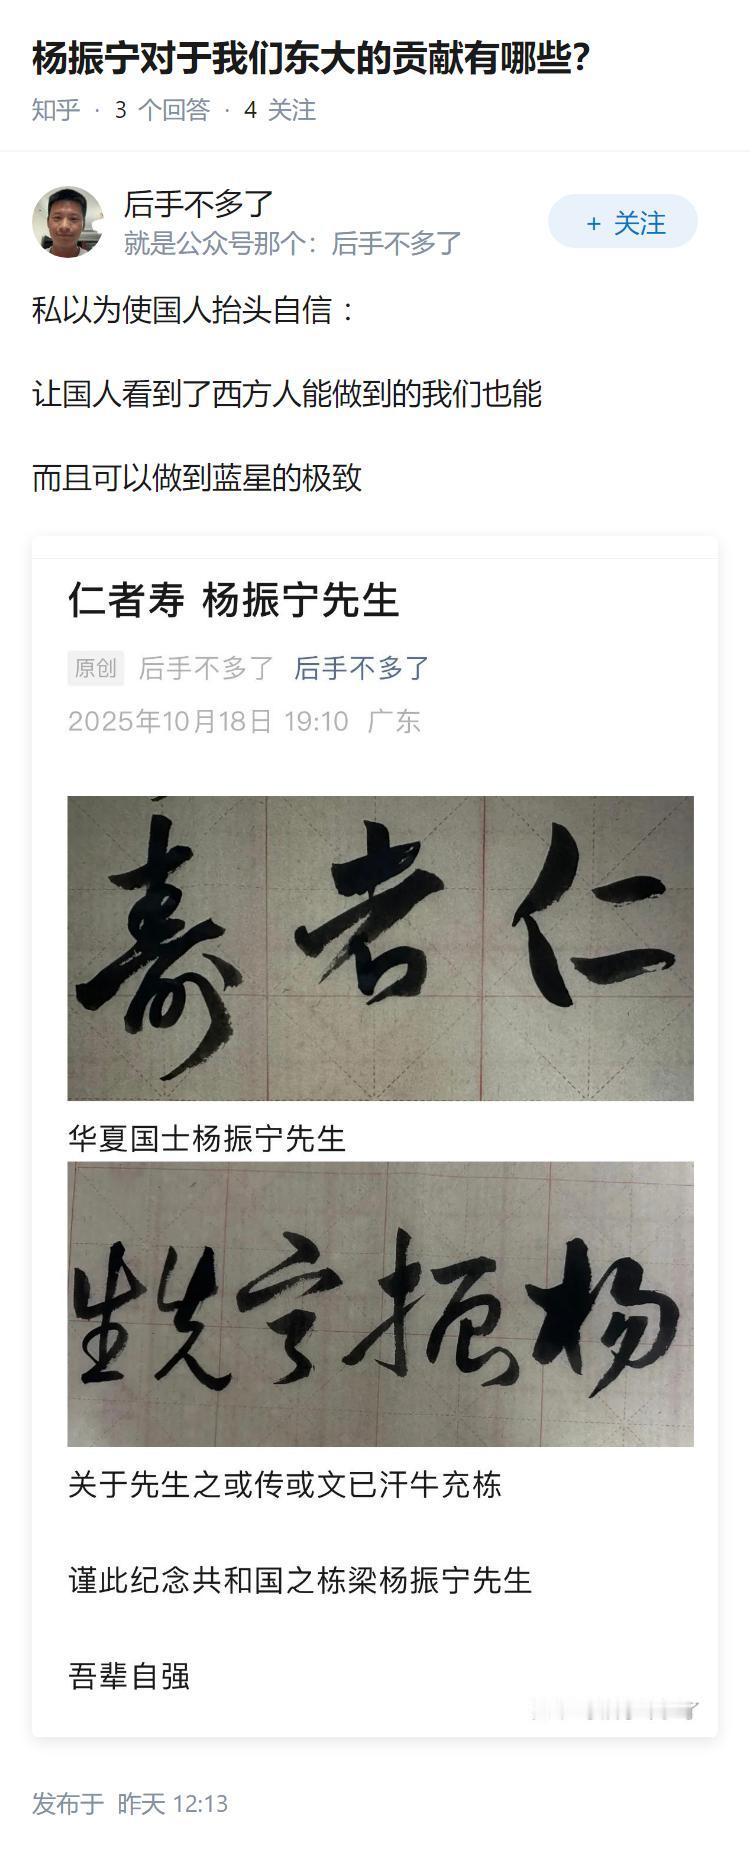 杨振宁对于我们东大的贡献有哪些?
知乎 · 3 个回答 · 4 关注
后手不多了
就是公众号那个：后手不多了
+ 关注
私以为使国人抬头自信：
让国人看到了西方人能做到的我们也能
而且可以做到蓝星的极致
仁者寿 杨振宁先生
原创 后手不多了 后手不多了
2025年10月18日 19:10 广东
仁者寿
华夏国士杨振宁先生
杨振宁先生
关于先生之或传或文已汗牛充栋
谨此纪念共和国之栋梁杨振宁先生
吾辈自强
发布于 昨天 12:13